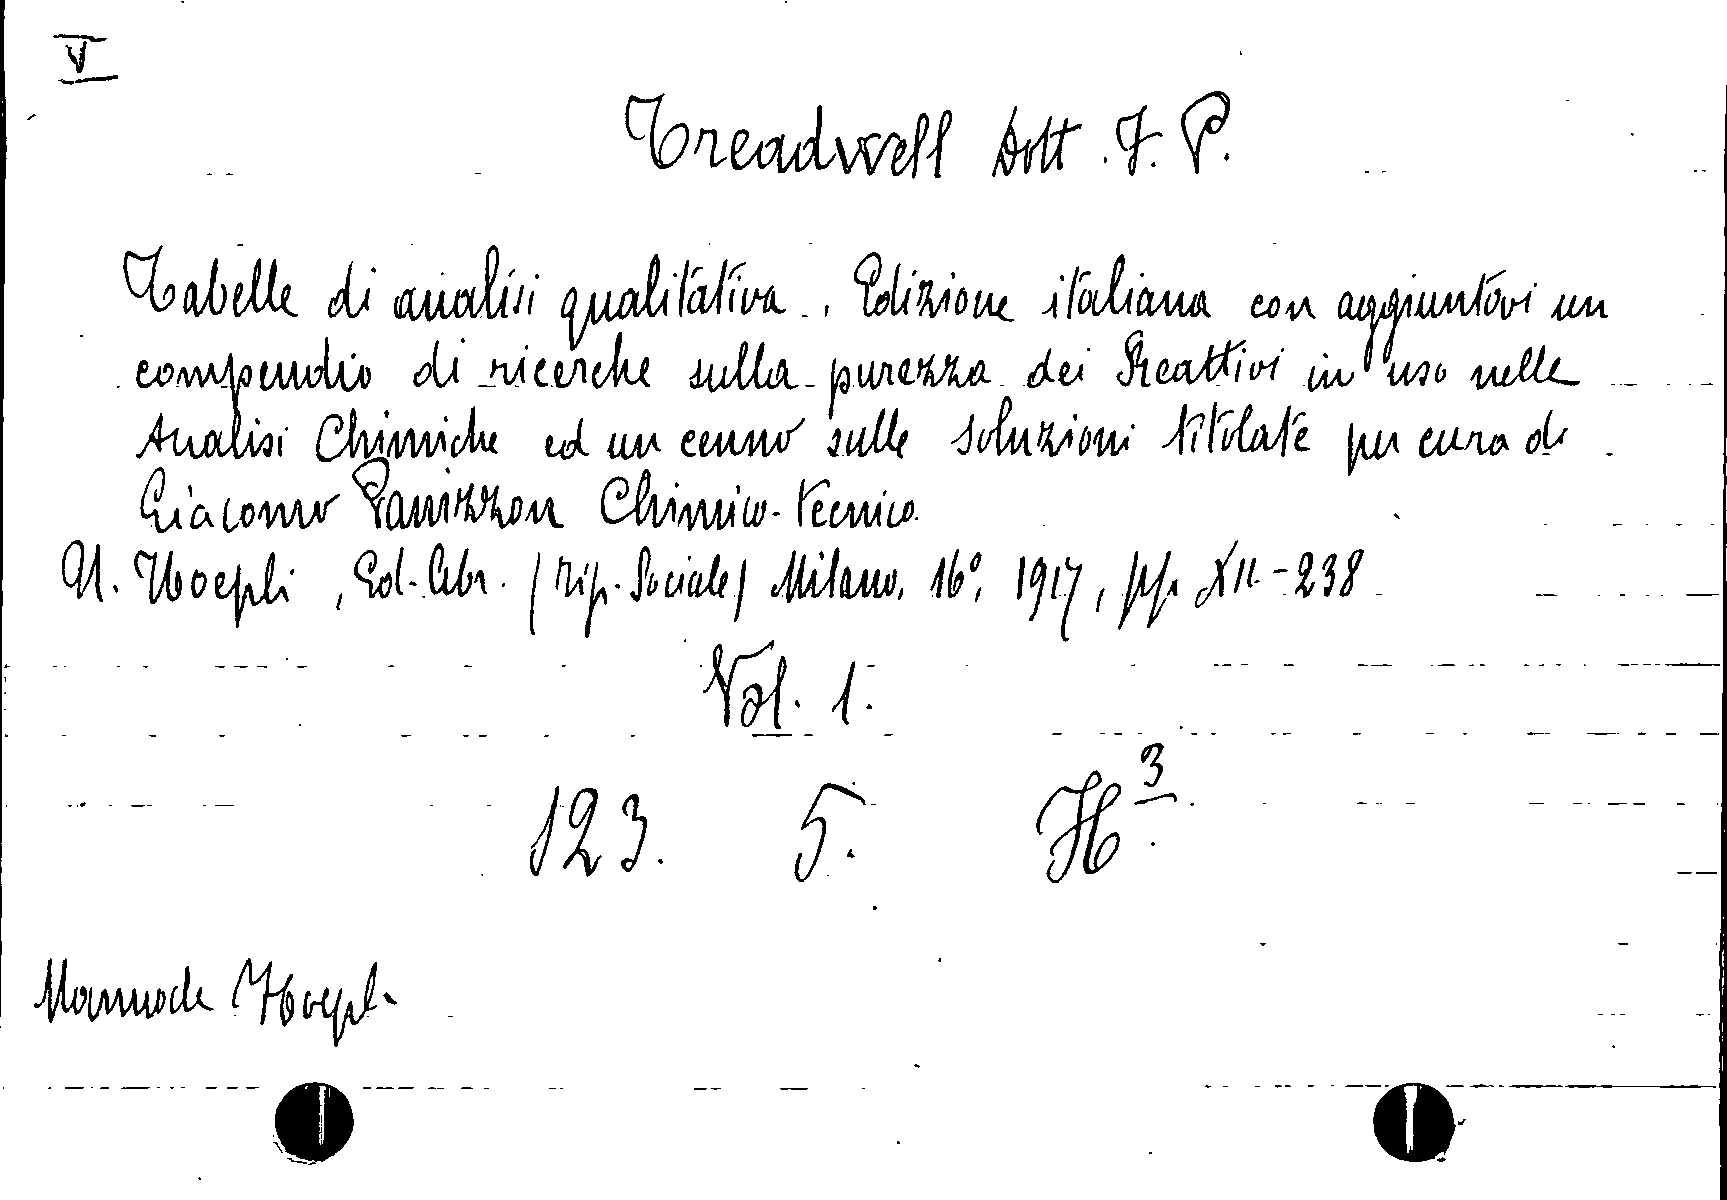 V
Treadwell Dott. F. P.
Tabelle di analisi qualitativa. Edizione italiana con aggiuntovi un
compendio di ricerche sulla purezza dei Reattivi in uso nelle
Analisi Chimiche ed un cenno sulle soluzioni titolate per cura di
Giacomo Panizzon Chimico-tecnico.
U. Hoepli, Ed-Libr. (Tip. Sociale) Milano, 16°, 1917, pp. XII-238
Vol. 1.
123. 5. H³.
Manuale Hoepli